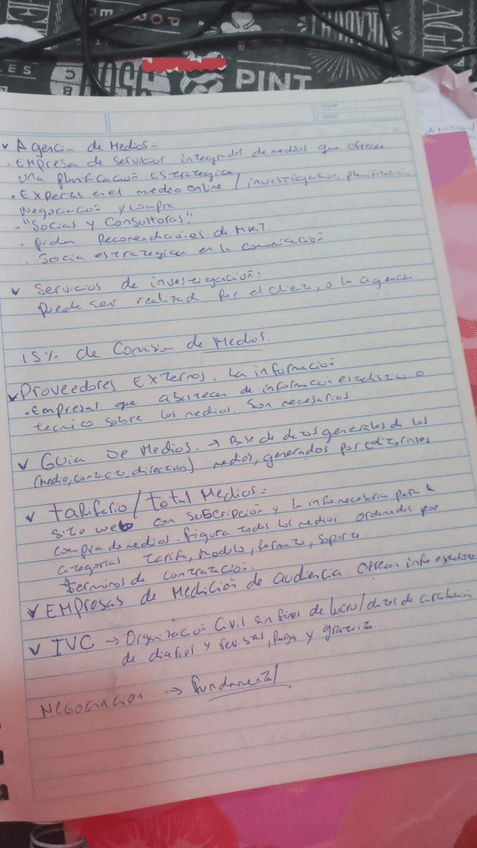 PINT
✓ Agencia de Medios:
· Empresa de servicios integrados de medios que ofrecen
una planificación Estrategica
· Expertas en el medio online / investigación, planificación
Negociación y compra
· "Socias y Consultoras"
· piden Recomendaciones de MKT.
· Socia estrategica en la comunicación
✓ Servicios de investigación:
Puede ser realizada por el cliente, o la agencia
15% de Comisión de Medios.
✓ Proveedores Externos. La información
· Empresas que abastecen de información estadistica o
tecnico sobre los medios. Son necesarios
✓ Guia de Medios. → Base de datos generales de los
(medio, contacto, directivos) medios, generados por editoriales
✓ tarifario / total Medios:
sitio web con subscripción y la info necesaria para la
compra de medios. figura todos los medios ordenados por
categorias. tarifa, modulo, formato, soporte
terminos de contratación.
✓ Empresas de Medición de audiencia. Ofrecen info estadistica
✓ IVC → Organización Civil sin fines de lucro / datos de circulación
de diarios y revistas, paga y gratuita
Negociacion → fundamental